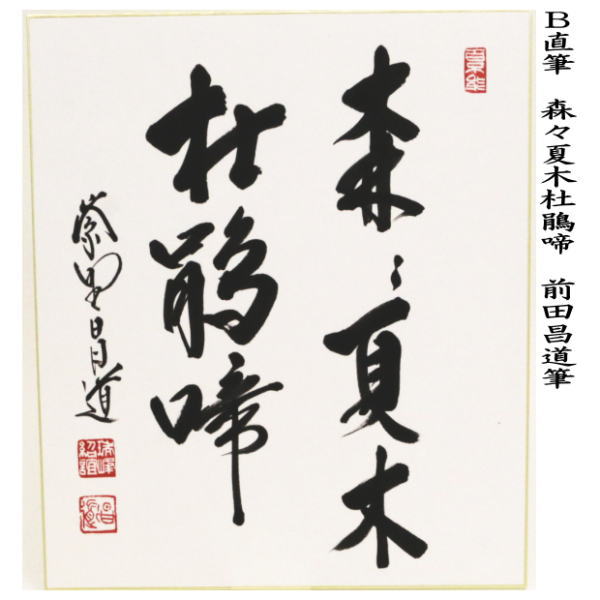 B直筆 森々夏木杜鵑啼 前田昌道筆
森々夏木
杜鵑啼
紫野昌道